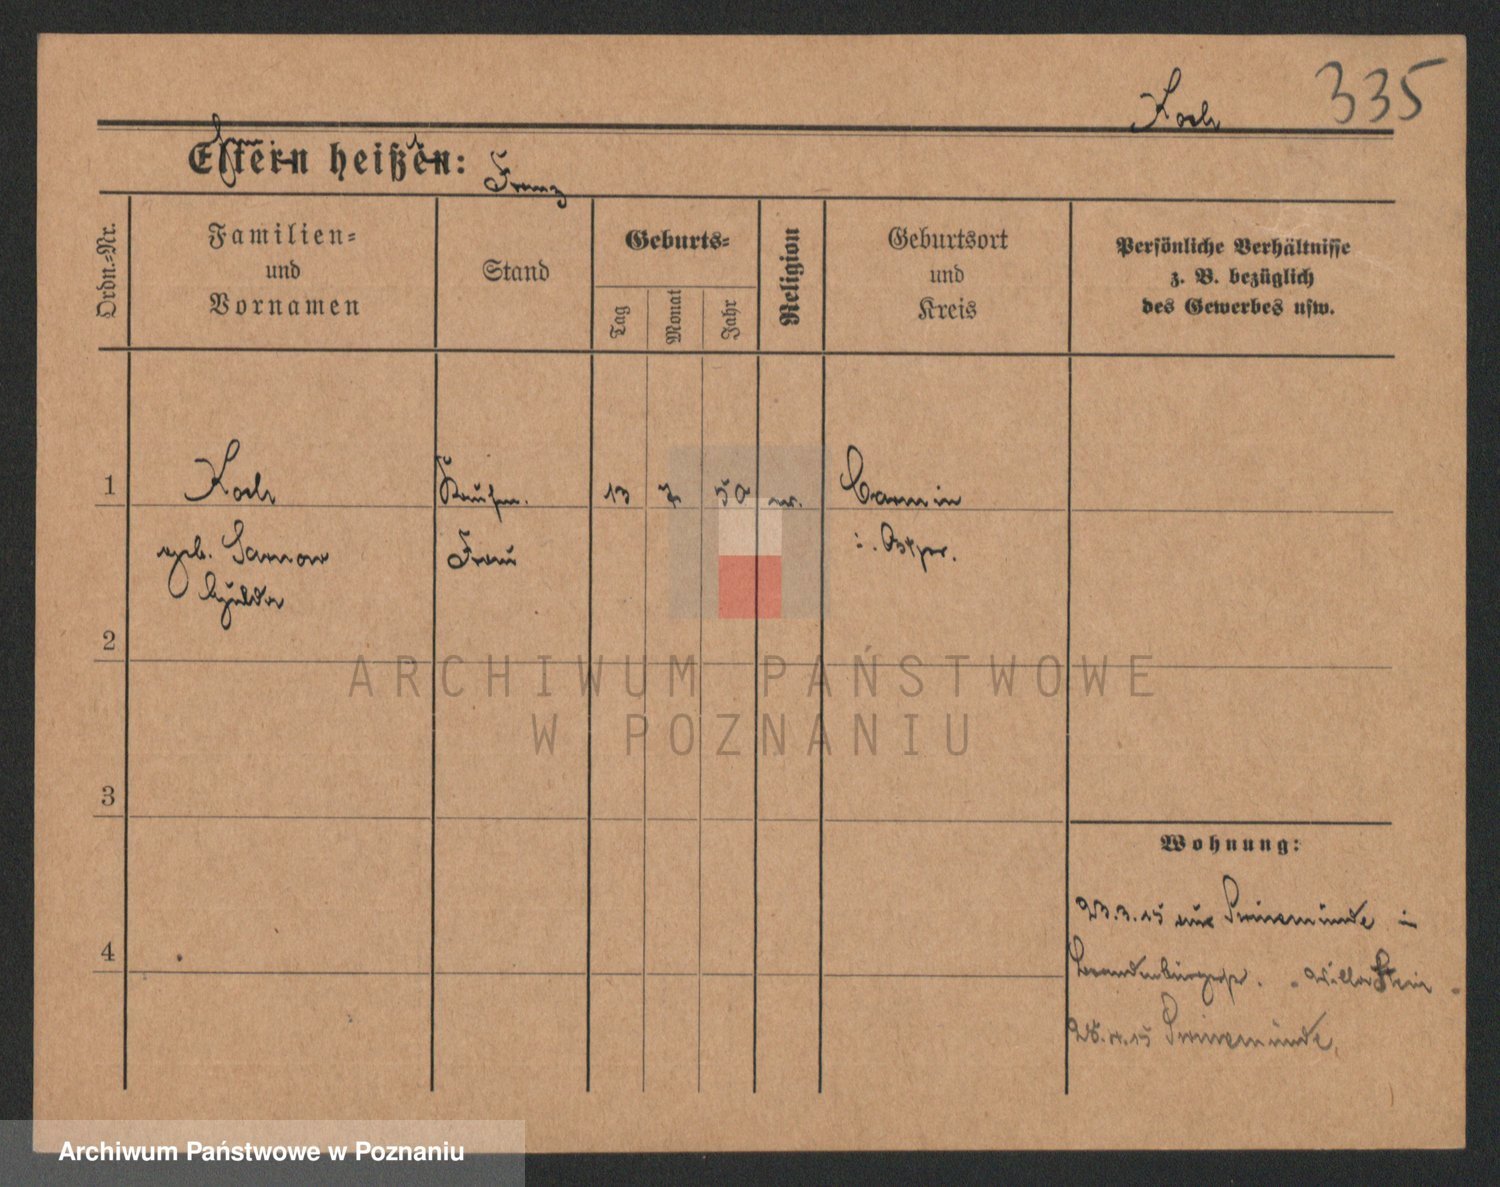 335
Koch
Eltern heißen:
Franz
Ordn.-Nr.
Familien-
und
Vornamen
Stand
Geburts-
Tag
Monat
Jahr
Religion
Geburtsort
und
Kreis
Persönliche Verhältnisse
z. B. bezüglich
des Gewerbes usw.
1
Koch
Kaufm.
13 7 50 ev.
Cammin
geb.
Frau
i. Ostpr.
2
ARCHIWUM PAŃSTWOWE
W POZNANIU
3
Wohnung:
23.3.15 aus Swinemünde in
4
Brandenburgerstr.
Swinemünde.
Archiwum Państwowe w Poznaniu